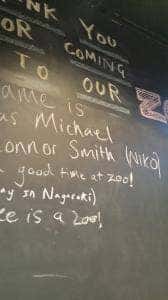 NK YOU
OR COMING
TO OUR Z
ame is
as Michael
onnor Smith (NIKO)
good time at zoo!
ay in Nagasaki)
e is a Zoo!